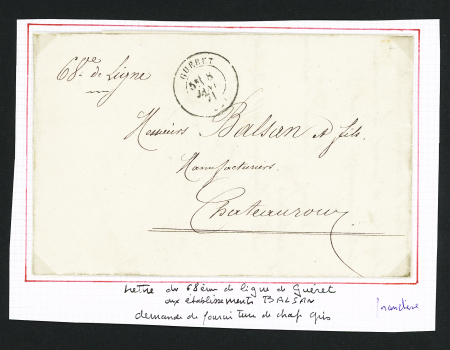 68e de Ligne
GUÉRET
8
JANV.
71
Messieurs Balsan & fils.
Manufacturiers
Chateauroux
Lettre du 68ème de ligne de Guéret
aux établissements BALSAN
demande de fourniture de drap gris